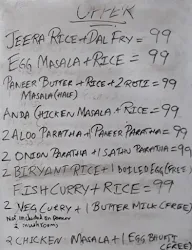 UPPER
JEERA RICE + DAL FRY = 99
EGG MASALA + RICE = 99
PANEER BUTTER + RICE + 2 ROTI = 99
MASALA (HALF)
ANDA CHICKEN MASALA + RICE = 99
2 ALOO PARATHA + 1 PANEER PARATHA = 99
2 ONION PARATHA + 1 SATTU PARATHA = 99
2 BIRYANI RICE + 1 BOILED EGG (FREE)
FISH CURRY + RICE = 99
2 VEG CURRY + 1 BUTTER MILK (FREE)
NOT INCLUDED IN PANEER
& MUSHROOMS
2 CHICKEN MASALA + 1 EGG BHURJI
(FREE)